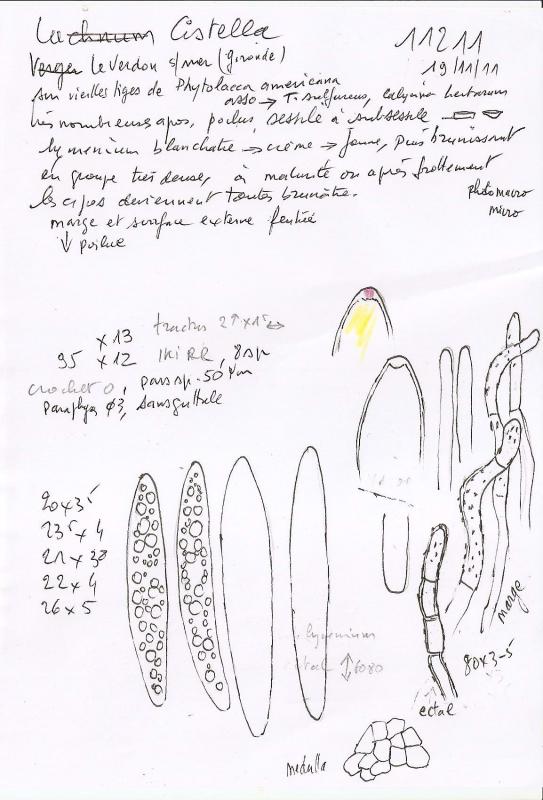 Lachnum Cistella
11211
19/11/11
Verger Le Verdon s/mer (Gironde)
sur vieilles tiges de Phytolacca americana
asso → T. sulfureus, calycina herbarum
très nombreuses apos, poilus, sessile à subsessile
hymenium blanchatre → crème → jaune, puis brunissant
en groupe très dense, à maturité ou après frottement
les apos deviennent toutes brunâtre.
marge et surface externe
↓ poilue
photo macro
micro
x 13
95 x 12
IKI RR, 8sp
crochet 0, parasp. 50 µm
paraphyses φ3, sans guttule
20 x 35
235 x 4
22 x 4
26 x 5
hymenium
ectal ↕ 6080
marge
80 x 3-5
ectal
medulla